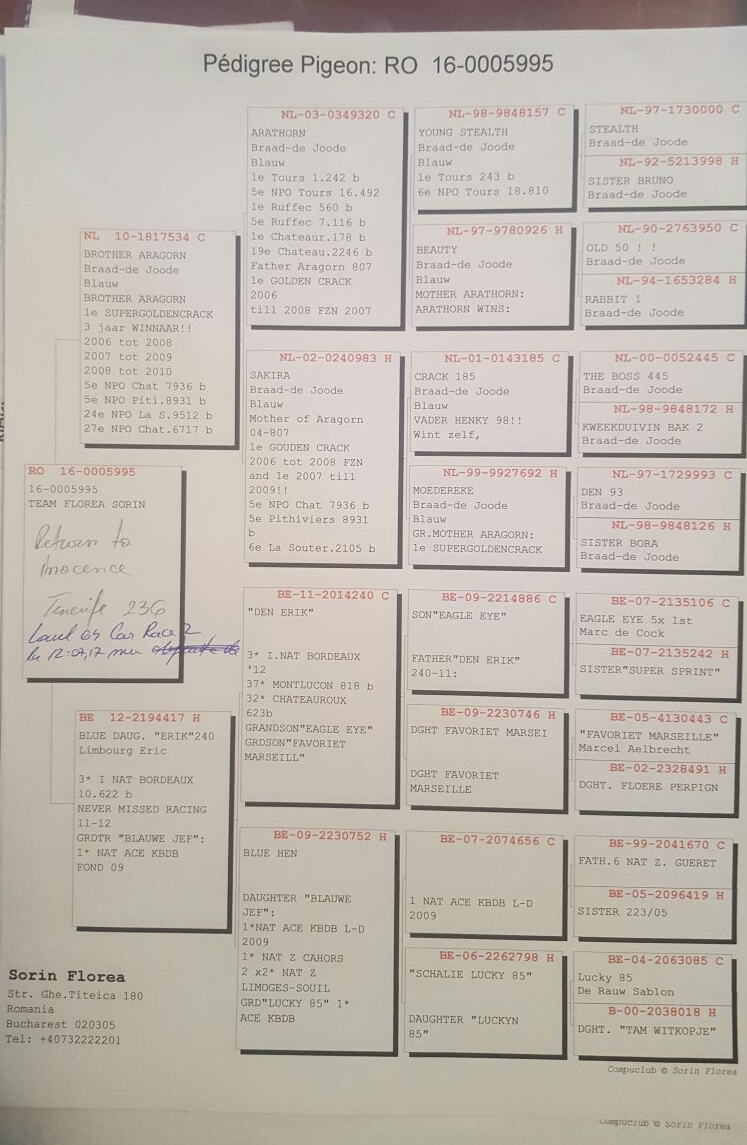 Pédigree Pigeon: RO 16-0005995
RO 16-0005995
16-0005995
TEAM FLOREA SORIN
Return to
Inocence
Tenerife 236
Car Race 2
NL 10-1817534 C
BROTHER ARAGORN
Braad-de Joode
Blauw
BROTHER ARAGORN
1e SUPERGOLDENCRACK
3 jaar WINNAAR!!
2006 tot 2008
2007 tot 2009
2008 tot 2010
5e NPO Chat 7936 b
5e NPO Piti.8931 b
24e NPO La S.9512 b
27e NPO Chat.6717 b
BE 12-2194417 H
BLUE DAUG. "ERIK"240
Limbourg Eric
3* I NAT BORDEAUX
10.622 b
NEVER MISSED RACING
11-12
GRDTR "BLAUWE JEF":
1* NAT ACE KBDB
FOND 09
NL-03-0349320 C
ARATHORN
Braad-de Joode
Blauw
1e Tours 1.242 b
5e NPO Tours 16.492
1e Ruffec 560 b
5e Ruffec 7.116 b
1e Chateaur.178 b
19e Chateau.2246 b
Father Aragorn 807
1e GOLDEN CRACK
2006
till 2008 FZN 2007
NL-02-0240983 H
SAKIRA
Braad-de Joode
Blauw
Mother of Aragorn
04-807
1e GOUDEN CRACK
2006 tot 2008 FZN
and 1e 2007 till
2009!!
5e NPO Chat 7936 b
5e Pithiviers 8931
b
6e La Souter.2105 b
BE-11-2014240 C
"DEN ERIK"
3* I.NAT BORDEAUX
'12
37* MONTLUCON 818 b
32* CHATEAUROUX
623b
GRANDSON"EAGLE EYE"
GRDSON"FAVORIET
MARSEILL"
BE-09-2230752 H
BLUE HEN
DAUGHTER "BLAUWE
JEF":
1*NAT ACE KBDB L-D
2009
1* NAT Z CAHORS
2 x2* NAT Z
LIMOGES-SOUIL
GRD"LUCKY 85" 1*
ACE KBDB
NL-98-9848157 C
YOUNG STEALTH
Braad-de Joode
Blauw
1e Tours 243 b
6e NPO Tours 18.810
NL-97-9780926 H
BEAUTY
Braad-de Joode
Blauw
MOTHER ARATHORN:
ARATHORN WINS:
NL-01-0143185 C
CRACK 185
Braad-de Joode
Blauw
VADER HENKY 98!!
Wint zelf,
NL-99-9927692 H
MOEDEREKE
Braad-de Joode
Blauw
GR.MOTHER ARAGORN:
1e SUPERGOLDENCRACK
BE-09-2214886 C
SON"EAGLE EYE"
FATHER"DEN ERIK"
240-11:
BE-09-2230746 H
DGHT FAVORIET MARSEI
DGHT FAVORIET
MARSEILLE
BE-07-2074656 C
1 NAT ACE KBDB L-D
2009
BE-06-2262798 H
"SCHALIE LUCKY 85"
DAUGHTER "LUCKYN
85"
NL-97-1730000 C
STEALTH
Braad-de Joode
NL-92-5213998 H
SISTER BRUNO
Braad-de Joode
NL-90-2763950 C
OLD 50 ! !
Braad-de Joode
NL-94-1653284 H
RABBIT 1
Braad-de Joode
NL-00-0052445 C
THE BOSS 445
Braad-de Joode
NL-98-9848172 H
KWEEKDUIVIN BAK 2
Braad-de Joode
NL-97-1729993 C
DEN 93
Braad-de Joode
NL-98-9848126 H
SISTER BORA
Braad-de Joode
BE-07-2135106 C
EAGLE EYE 5x 1st
Marc de Cock
BE-07-2135242 H
SISTER"SUPER SPRINT"
BE-05-4130443 C
"FAVORIET MARSEILLE"
Marcel Aelbrecht
BE-02-2328491 H
DGHT. FLOERE PERPIGN
BE-99-2041670 C
FATH.6 NAT Z. GUERET
BE-05-2096419 H
SISTER 223/05
BE-04-2063085 C
Lucky 85
De Rauw Sablon
B-00-2038018 H
DGHT. "TAM WITKOPJE"
Sorin Florea
Str. Ghe.Titeica 180
Romania
Bucharest 020305
Tel: +40732222201
Compuclub © Sorin Florea
Compuclub © Sorin Florea